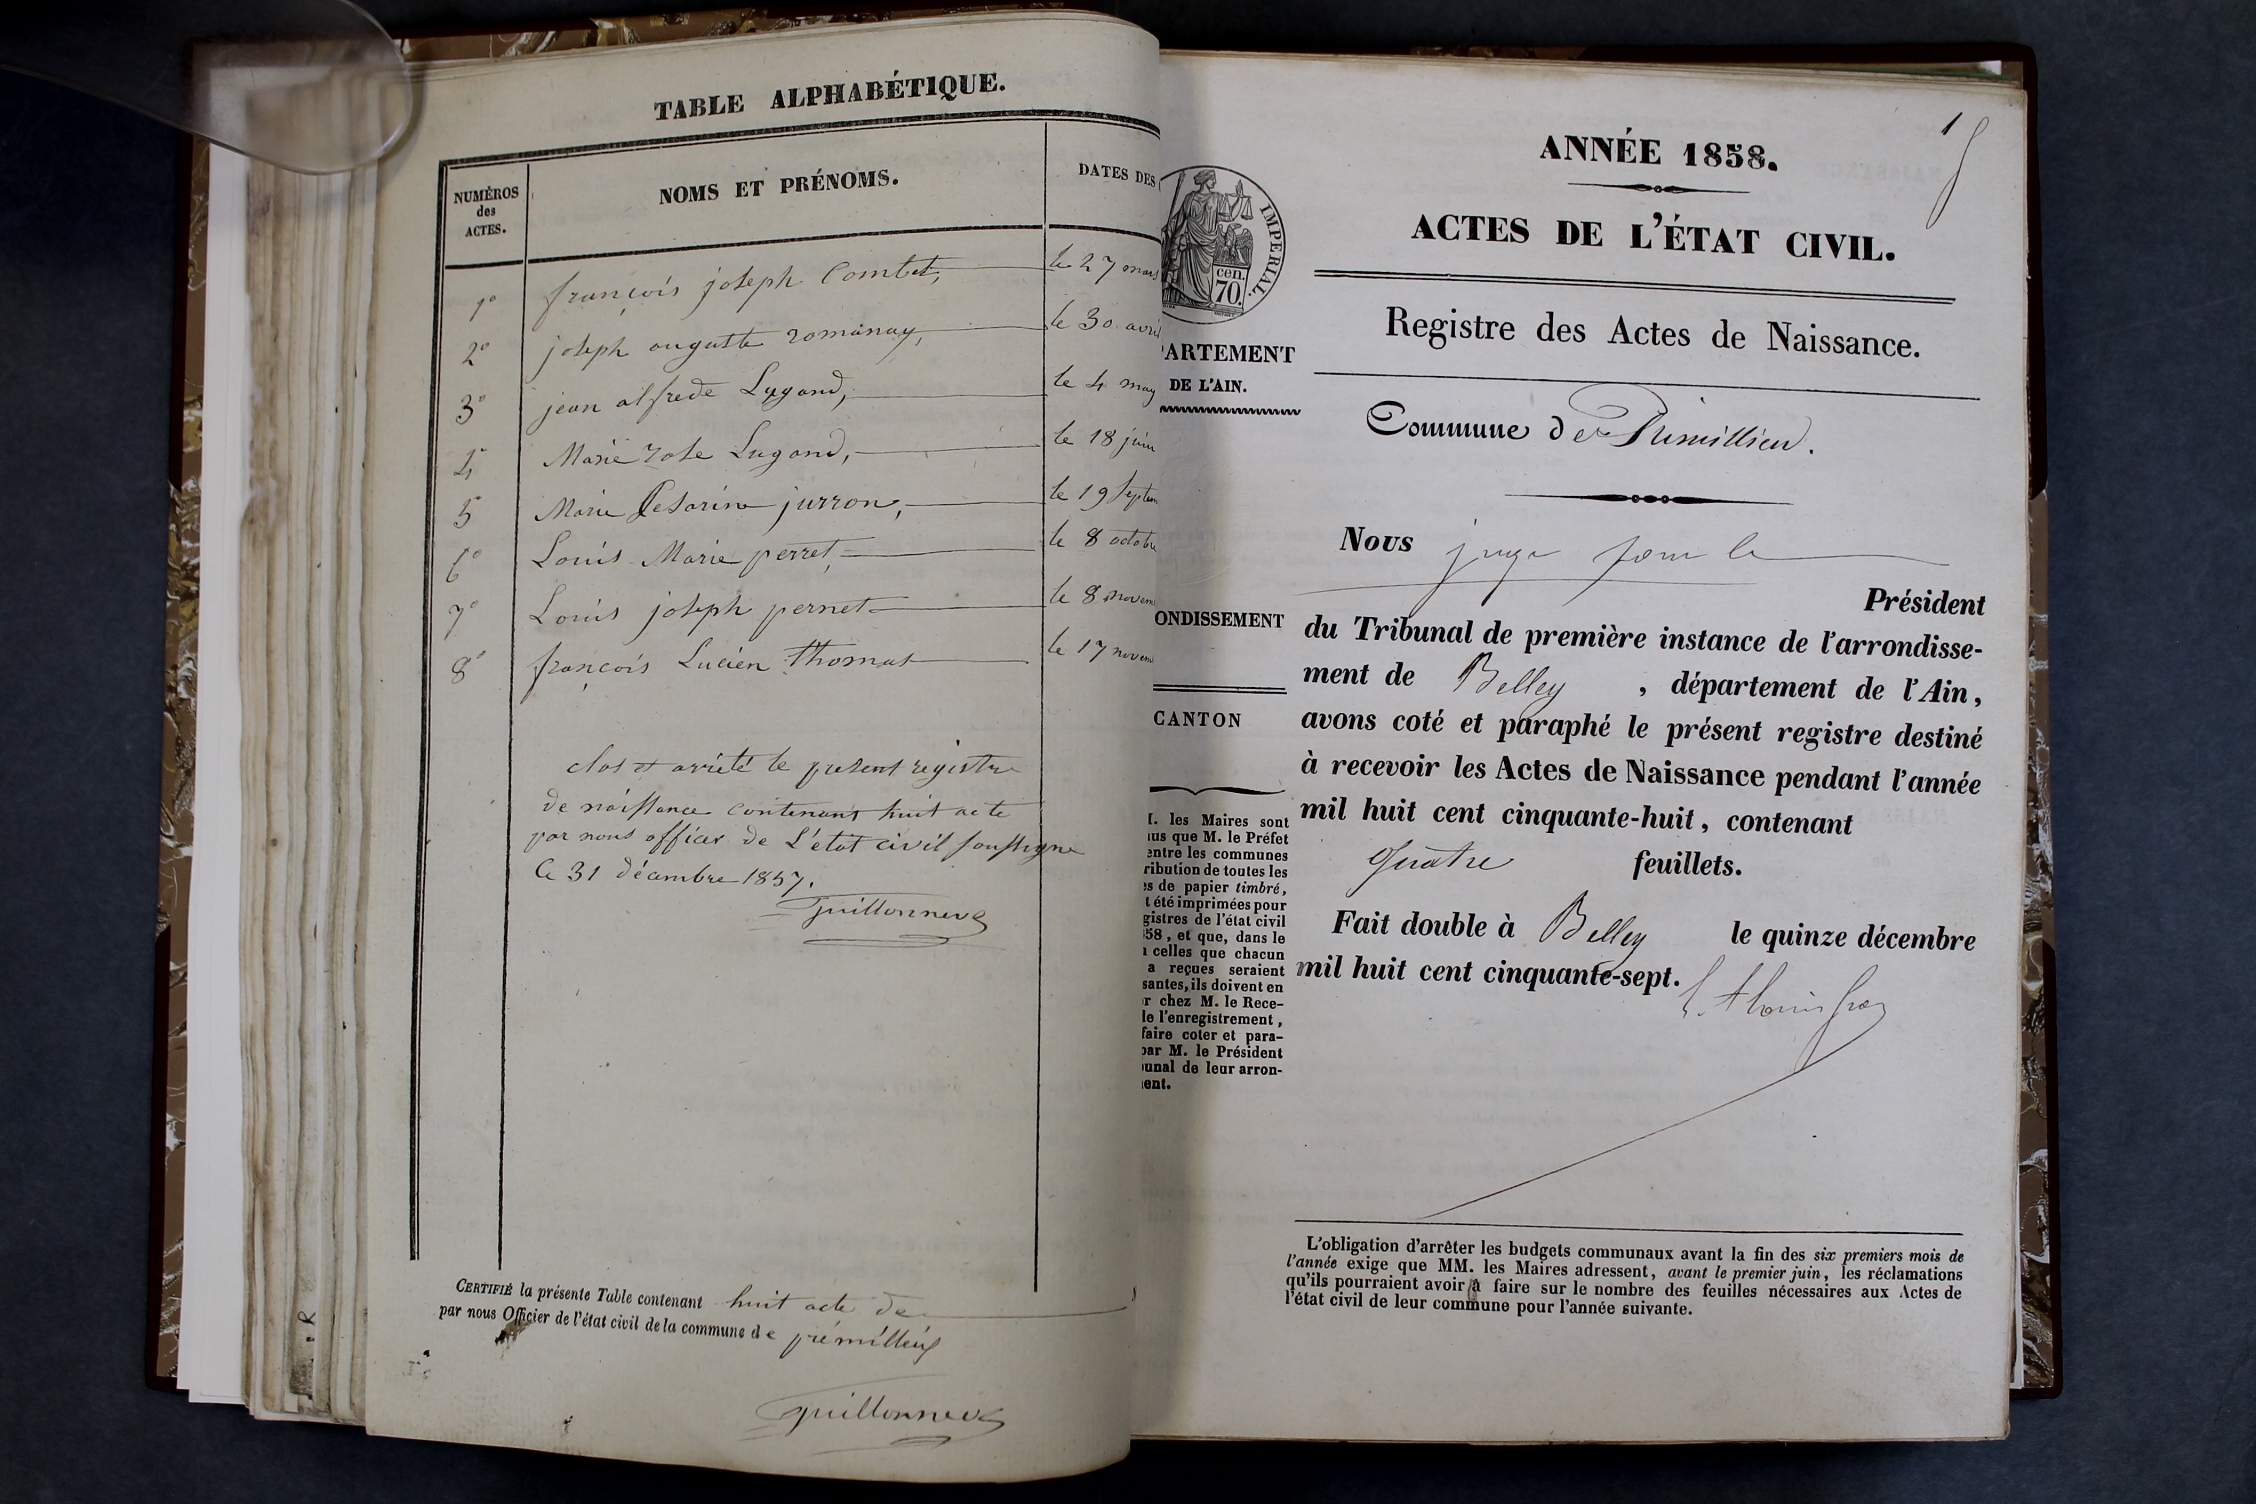 TABLE ALPHABÉTIQUE.
NUMÉROS
des
ACTES.
NOMS ET PRÉNOMS.
DATES DES
1º françois joseph Combet, le 27 mars
2º joseph auguste romanay, le 30 avril
3º jean alfrede Lugand, le 4 may
4 Marie rose Lugand, le 18 juin
5 Marie Cesarine jurron, le 19 septem
6º Louis Marie perret, le 8 octobre
7º Louis joseph pernet le 8 novem
8º françois Lucien thomas le 17 novem
clos et arrêté le présent registre
de naissance contenant huit acte
par nous officier de L'état civil soussigné
Ce 31 décembre 1857.
Guillonneus
CERTIFIÉ la présente Table contenant huit acte de
par nous Officier de l'état civil de la commune de prémillieu
Guillonneus
1
IMPERIAL.
cen.
70.
PARTEMENT
DE L'AIN.
ONDISSEMENT
CANTON
M. les Maires sont
que M. le Préfet
entre les communes
ribution de toutes les
es de papier timbré,
t été imprimées pour
gistres de l'état civil
58, et que, dans le
celles que chacun
a reçues seraient
santes, ils doivent en
r chez M. le Rece-
de l'enregistrement,
faire coter et para-
par M. le Président
unal de leur arron-
ent.
ANNÉE 1858.
ACTES DE L'ÉTAT CIVIL.
Registre des Actes de Naissance.
Commune de Prémillieu.
Nous juge pour le
Président
du Tribunal de première instance de l'arrondisse-
ment de Belley, département de l'Ain,
avons coté et paraphé le présent registre destiné
à recevoir les Actes de Naissance pendant l'année
mil huit cent cinquante-huit, contenant
quatre feuillets.
Fait double à Belley le quinze décembre
mil huit cent cinquante-sept.
L'obligation d'arrêter les budgets communaux avant la fin des six premiers mois de
l'année exige que MM. les Maires adressent, avant le premier juin, les réclamations
qu'ils pourraient avoir à faire sur le nombre des feuilles nécessaires aux Actes de
l'état civil de leur commune pour l'année suivante.